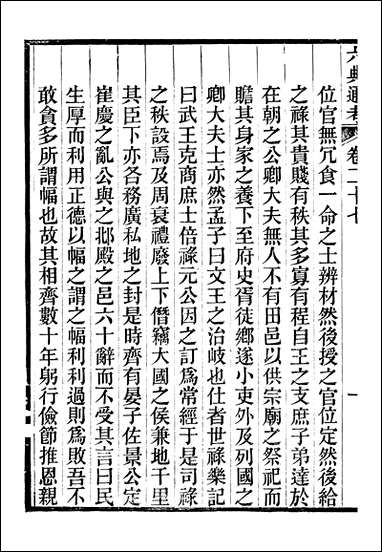 六典通考 卷二十七 一
位官無冗食一命之士辨材然後授之官位定然後給
之祿其貴賤有秩其多寡有程自王之支庶子弟達於
在朝之公卿大夫無人不有田邑以供宗廟之祭祀而
贍其身家之養下至府史胥徒鄉遂小吏外及列國之
卿大夫士亦然孟子曰文王之治岐也仕者世祿樂記
曰武王克商庶士倍祿元公因之訂爲常經于是司祿
之秩設焉及周衰禮廢上下僭竊大國之侯兼地千里
其臣下亦各務廣私地之封是時齊有晏子佐景公定
崔慶之亂公與之邶殿之邑六十辭而不受其言曰民
生厚而利用正德以幅之謂之幅利利過則爲敗吾不
敢貪多所謂幅也故其相齊數十年躬行儉節推恩親